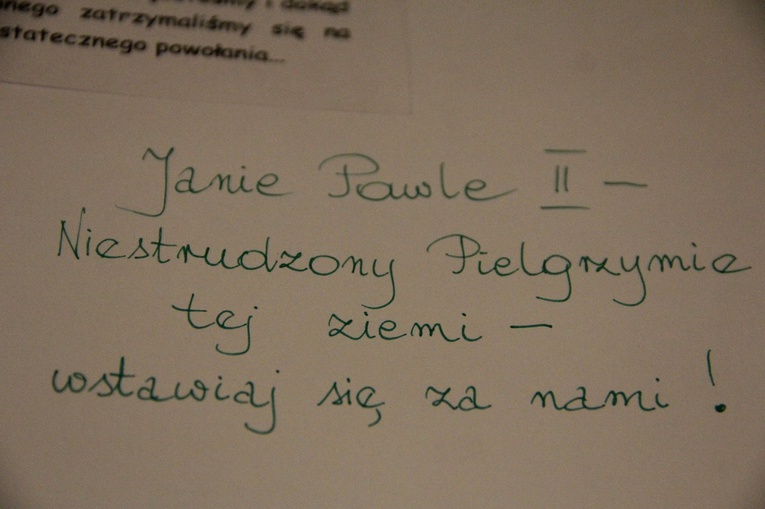 zatrzymaliśmy się na
statecznego powołania...
Janie Pawle II —
Niestrudzony Pielgrzymie
tej ziemi —
wstawiaj się za nami!